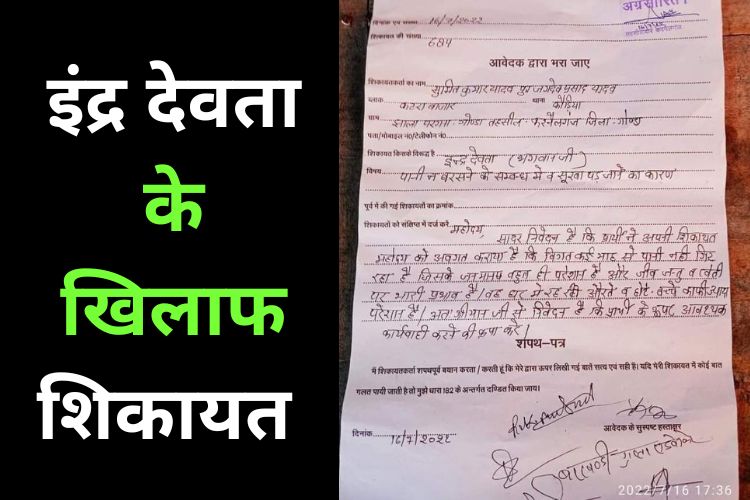 इंद्र देवता
के
खिलाफ
शिकायत
अग्रसारित
दिनांक एवं संख्या 16/7/2022
शिकायत की संख्या 684
आवेदक द्वारा भरा जाए
शिकायतकर्ता का नाम सुमित कुमार यादव पुत्र जगदेव प्रसाद यादव
ब्लाक कटरा बाजार थाना कौड़िया
ग्राम झाला परगना गोण्डा तहसील करनैलगंज जिला गोण्डा
पता/मोबाइल न0/टेलीफोन न0
शिकायत किसके विरुद्ध है इन्द्र देवता (भगवान जी)
विषय पानी न बरसने के सम्बन्ध में व सूखा पड़ जाने का कारण
पूर्व में की गई शिकायतों का क्रमांक
शिकायतों को संक्षिप्त में दर्ज करें महोदय,
सादर निवेदन है कि प्रार्थी ने अपनी शिकायत
महोदय को अवगत कराया है कि विगत कई माह से पानी नहीं गिर
रहा है जिसके जनमानष बहुत ही परेशान है और जीव जन्तु व खेती
पर भारी प्रभाव है। घर में रह रही औरतें व छोटे बच्चे काफी
परेशान है। अतः श्रीमान जी से निवेदन है कि प्रार्थी के आवश्यक
कार्यवाही करने की कृपा करें।
शपथ-पत्र
में शिकायतकर्ता शपथपूर्व बयान करता / करती हूं कि मेरे द्वारा ऊपर लिखी गई बातें सत्य एवं सही है। यदि मेरी शिकायत में कोई बात
गलत पायी जाती है तो मुझे धारा 182 के अन्तर्गत दण्डित किया जाय।
आवेदक के सुस्पष्ट हस्ताक्षर
दिनांक 16/7/2022
2022/7/16 17:36